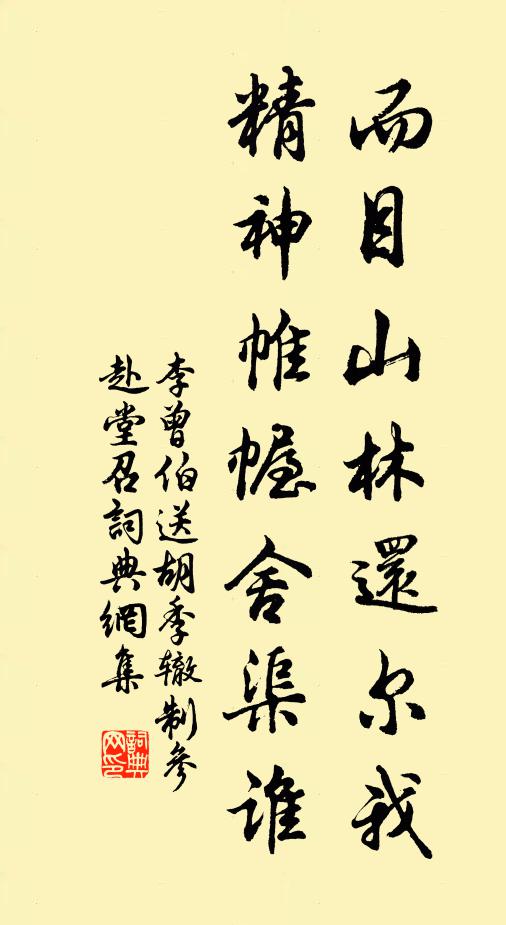 而目山林還尔我
精神帷幄舍渠谁
李曾伯送胡季辙制參
赴堂召詞典網集
詞典
网印